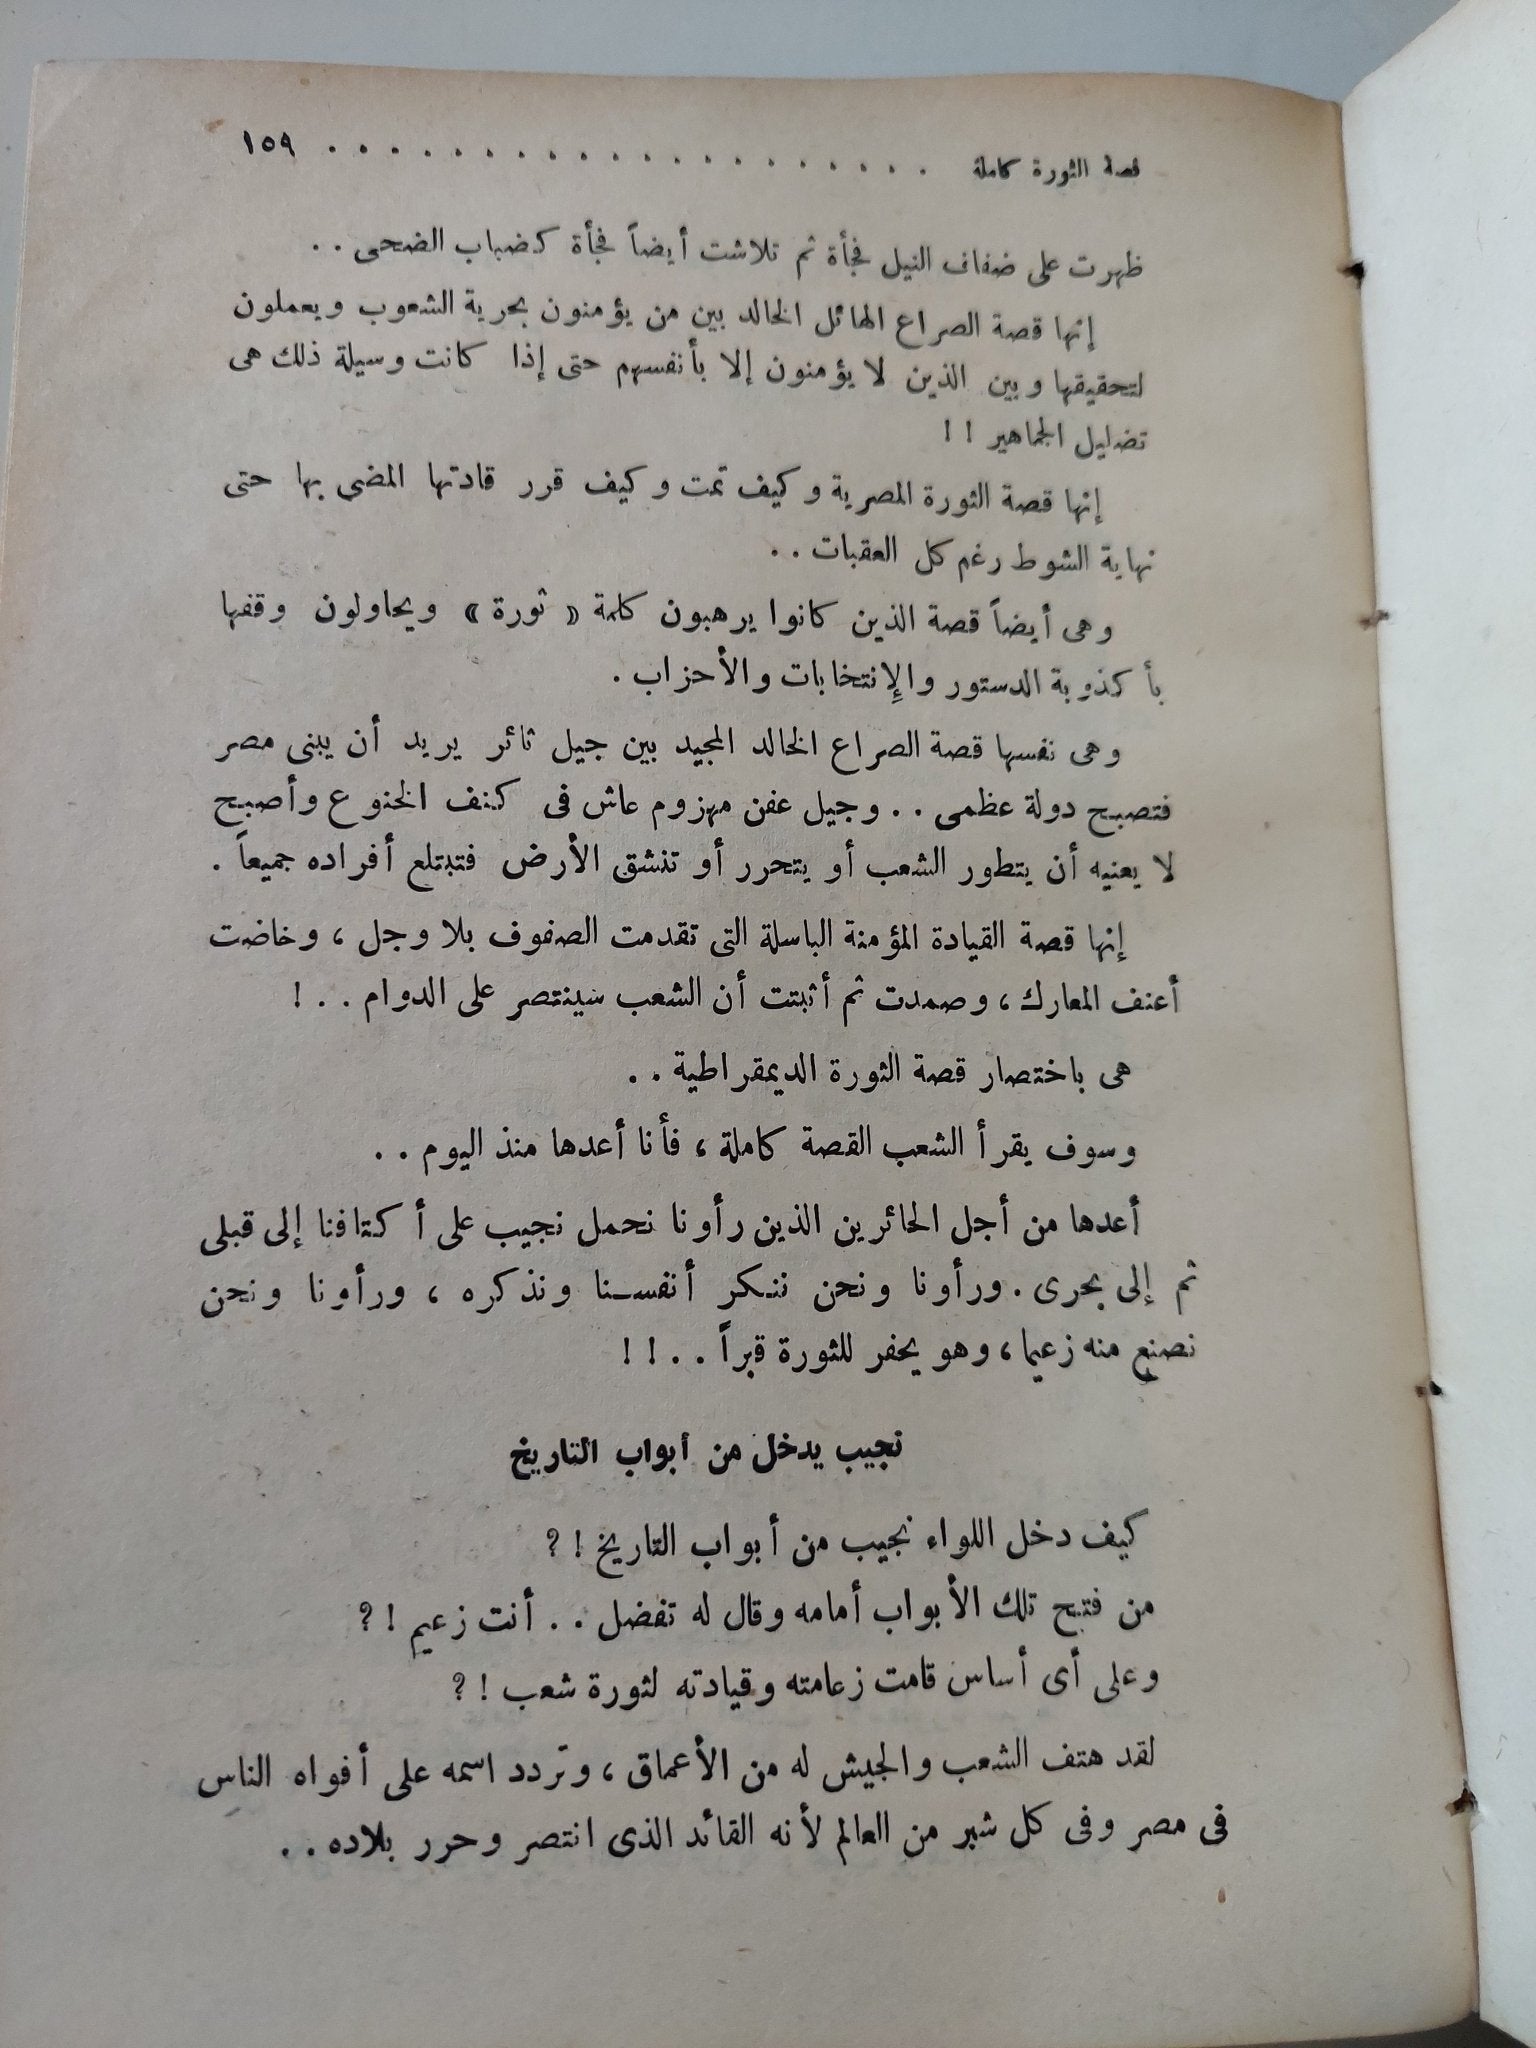 قصة الثورة كاملة . . . . . . . . . . . . . . . . . . . . ١٥٩
ظهرت على ضفاف النيل فجأة ثم تلاشت أيضاً فجأة كضباب الضحى . .
إنها قصة الصراع الهائل الخالد بين من يؤمنون بحرية الشعوب ويعملون
لتحقيقها وبين الذين لا يؤمنون إلا بأنفسهم حتى إذا كانت وسيلة ذلك هى
تضليل الجماهير ! !
إنها قصة الثورة المصرية وكيف تمت وكيف قرر قادتها المضى بها حتى
نهاية الشوط رغم كل العقبات . .
وهى أيضاً قصة الذين كانوا يرهبون كلمة « ثورة » ويحاولون وقفها
بأكذوبة الدستور والإنتخابات والأحزاب .
وهى نفسها قصة الصراع الخالد المجيد بين جيل ثائر يريد أن يبنى مصر
فتصبح دولة عظمى . . وجيل عفن مهزوم عاش فى كنف الخنوع وأصبح
لا يعنيه أن يتطور الشعب أو يتحرر أو تنشق الأرض فتبتلع أفراده جميعاً .
إنها قصة القيادة المؤمنة الباسلة التى تقدمت الصفوف بلا وجل ، وخاضت
أعنف المعارك ، وصمدت ثم أثبتت أن الشعب سينتصر على الدوام . . !
هى باختصار قصة الثورة الديمقراطية . .
وسوف يقرأ الشعب القصة كاملة ، فأنا أعدها منذ اليوم . .
أعدها من أجل الحائرين الذين رأونا نحمل نجيب على أكتافنا إلى قبلى
ثم إلى بحرى . ورأونا ونحن ننكر أنفسنا ونذكره ، ورأونا ونحن
نصنع منه زعيما ، وهو يحفر للثورة قبراً . . ! !
نجيب يدخل من أبواب التاريخ
كيف دخل اللواء نجيب من أبواب التاريخ ! ؟
من فتح تلك الأبواب أمامه وقال له تفضل . . أنت زعيم ! ؟
وعلى أى أساس قامت زعامته وقيادته لثورة شعب ! ؟
لقد هتف الشعب والجيش له من الأعماق ، وتردد اسمه على أفواه الناس
فى مصر وفى كل شبر من العالم لأنه القائد الذى انتصر وحرر بلاده . .